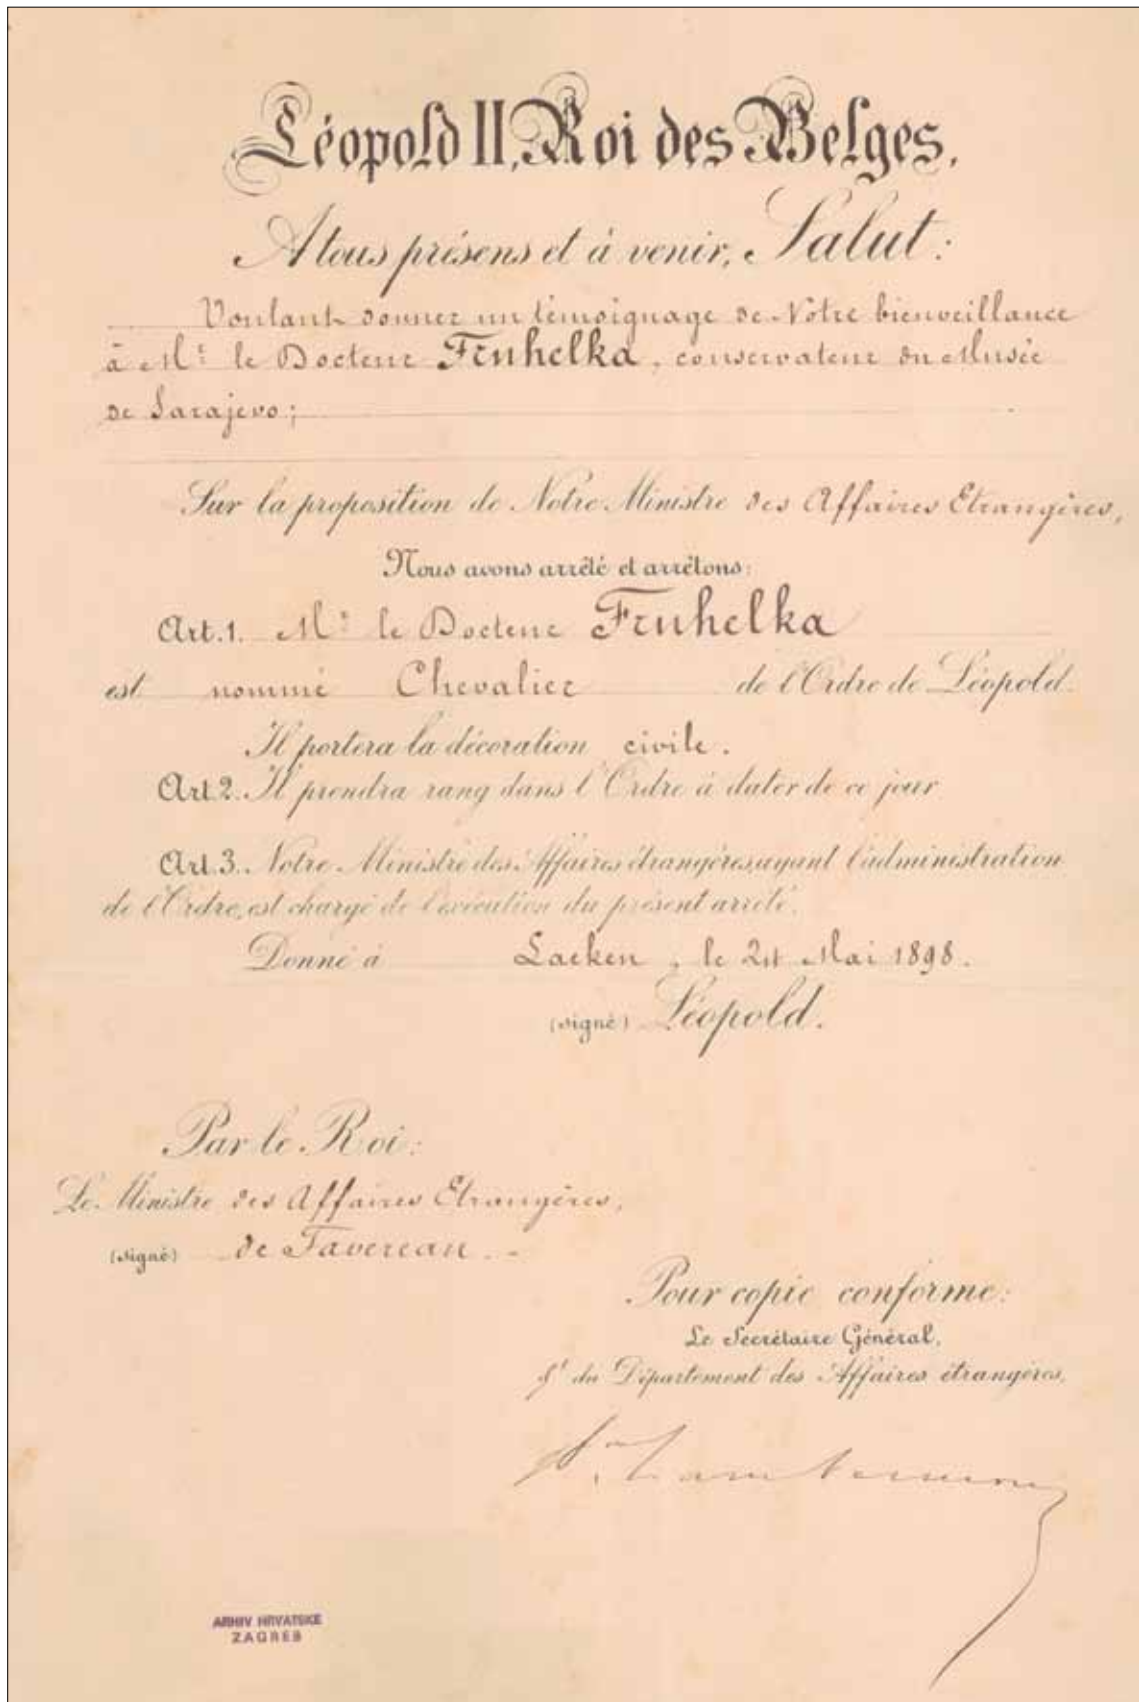 Léopold II, Roi des Belges.
A tous présens et à venir, Salut:
Voulant donner un témoignage de Notre bienveillance
à Mr le Docteur Fruhelka, conservateur du Musée
de Sarajevo;
Sur la proposition de Notre Ministre des Affaires Etrangères,
Nous avons arrêté et arrêtons:
Art.1. Mr le Docteur Fruhelka
est nommé Chevalier de l'Ordre de Léopold.
Il portera la décoration civile.
Art.2. Il prendra rang dans l'Ordre à dater de ce jour
Art.3. Notre Ministre des Affaires étrangères, ayant l'administration
de l'Ordre, est chargé de l'exécution du présent arrêté.
Donné à Laeken, le Mai 1898.
(signé) Léopold.
Par le Roi:
Le Ministre des Affaires Etrangères,
(signé) de Favereau.
Pour copie conforme:
Le Secrétaire Général,
du Département des Affaires étrangères,
ARHIV HRVATSKE
ZAGREB